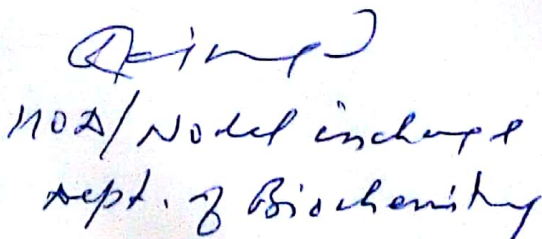 HOD/Nodal incharge
Dept. of Biochemistry